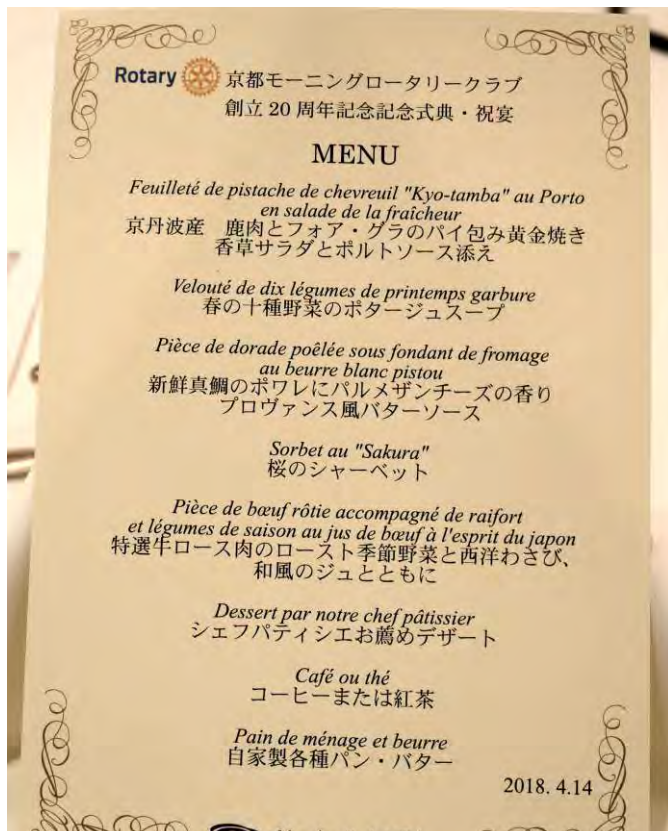 Rotary 京都モーニングロータリークラブ
創立 20 周年記念記念式典・祝宴
MENU
Feuilleté de pistache de chevreuil "Kyo-tamba" au Porto
en salade de la fraîcheur
京丹波産　鹿肉とフォア・グラのパイ包み黄金焼き
香草サラダとポルトソース添え
Velouté de dix légumes de printemps garbure
春の十種野菜のポタージュスープ
Pièce de dorade poêlée sous fondant de fromage
au beurre blanc pistou
新鮮真鯛のポワレにパルメザンチーズの香り
プロヴァンス風バターソース
Sorbet au "Sakura"
桜のシャーベット
Pièce de bœuf rôtie accompagné de raifort
et légumes de saison au jus de bœuf à l'esprit du japon
特選牛ロース肉のロースト季節野菜と西洋わさび、
和風のジュとともに
Dessert par notre chef pâtissier
シェフパティシエお薦めデザート
Café ou thé
コーヒーまたは紅茶
Pain de ménage et beurre
自家製各種パン・バター
2018. 4.14